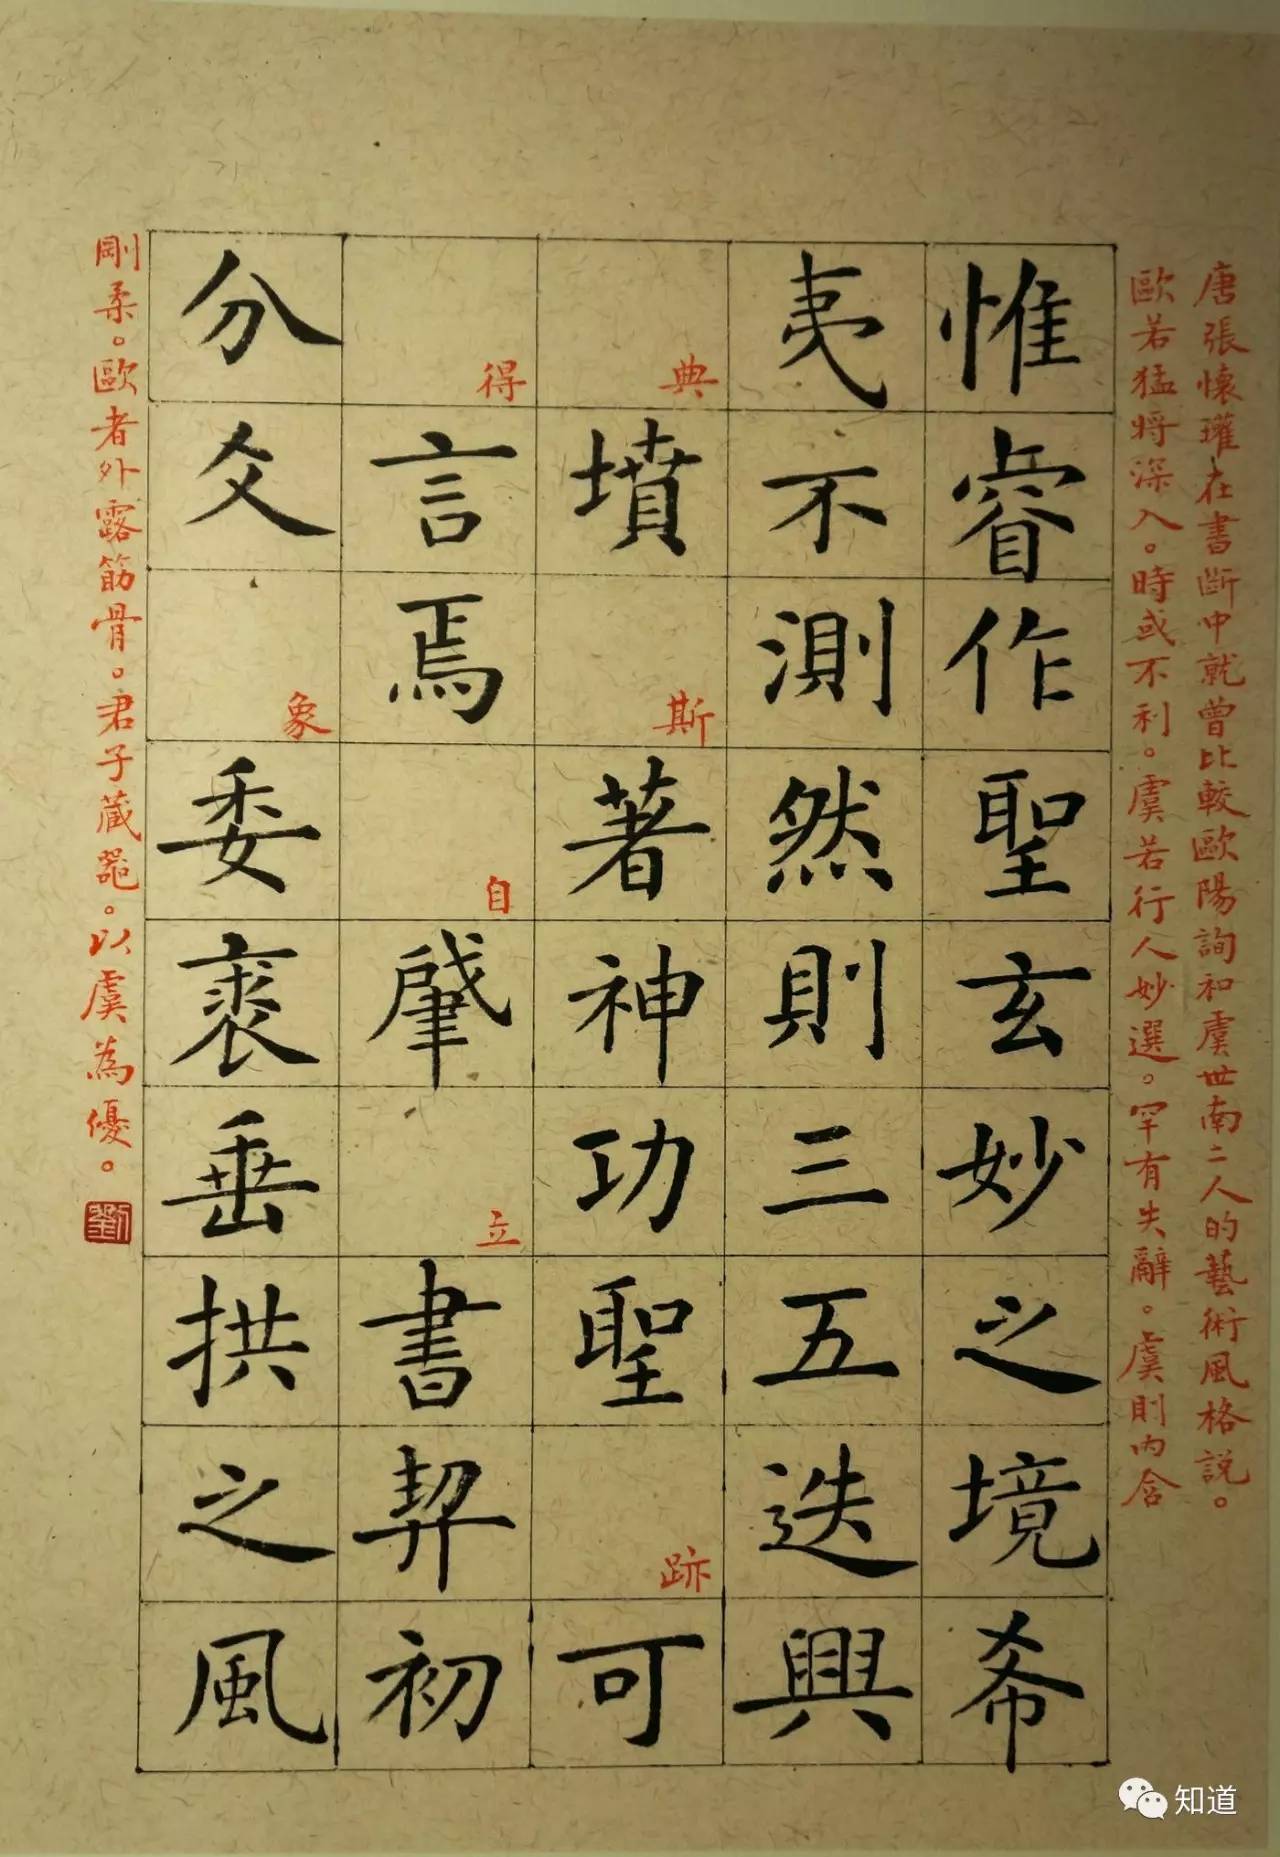 唐張懷瓘在書斷中就曾比較歐陽詢和虞世南二人的藝術風格説。
歐若猛將深入。時或不利。虞若行人妙選。罕有失辭。虞則內含
惟睿作聖玄妙之境希
夷不測然則三五迭興
典墳斯著神功聖跡可
得言焉自肇立書契初
分爻象委裘垂拱之風
剛柔。歐者外露筋骨。君子藏器。以虞為優。
劉
知道